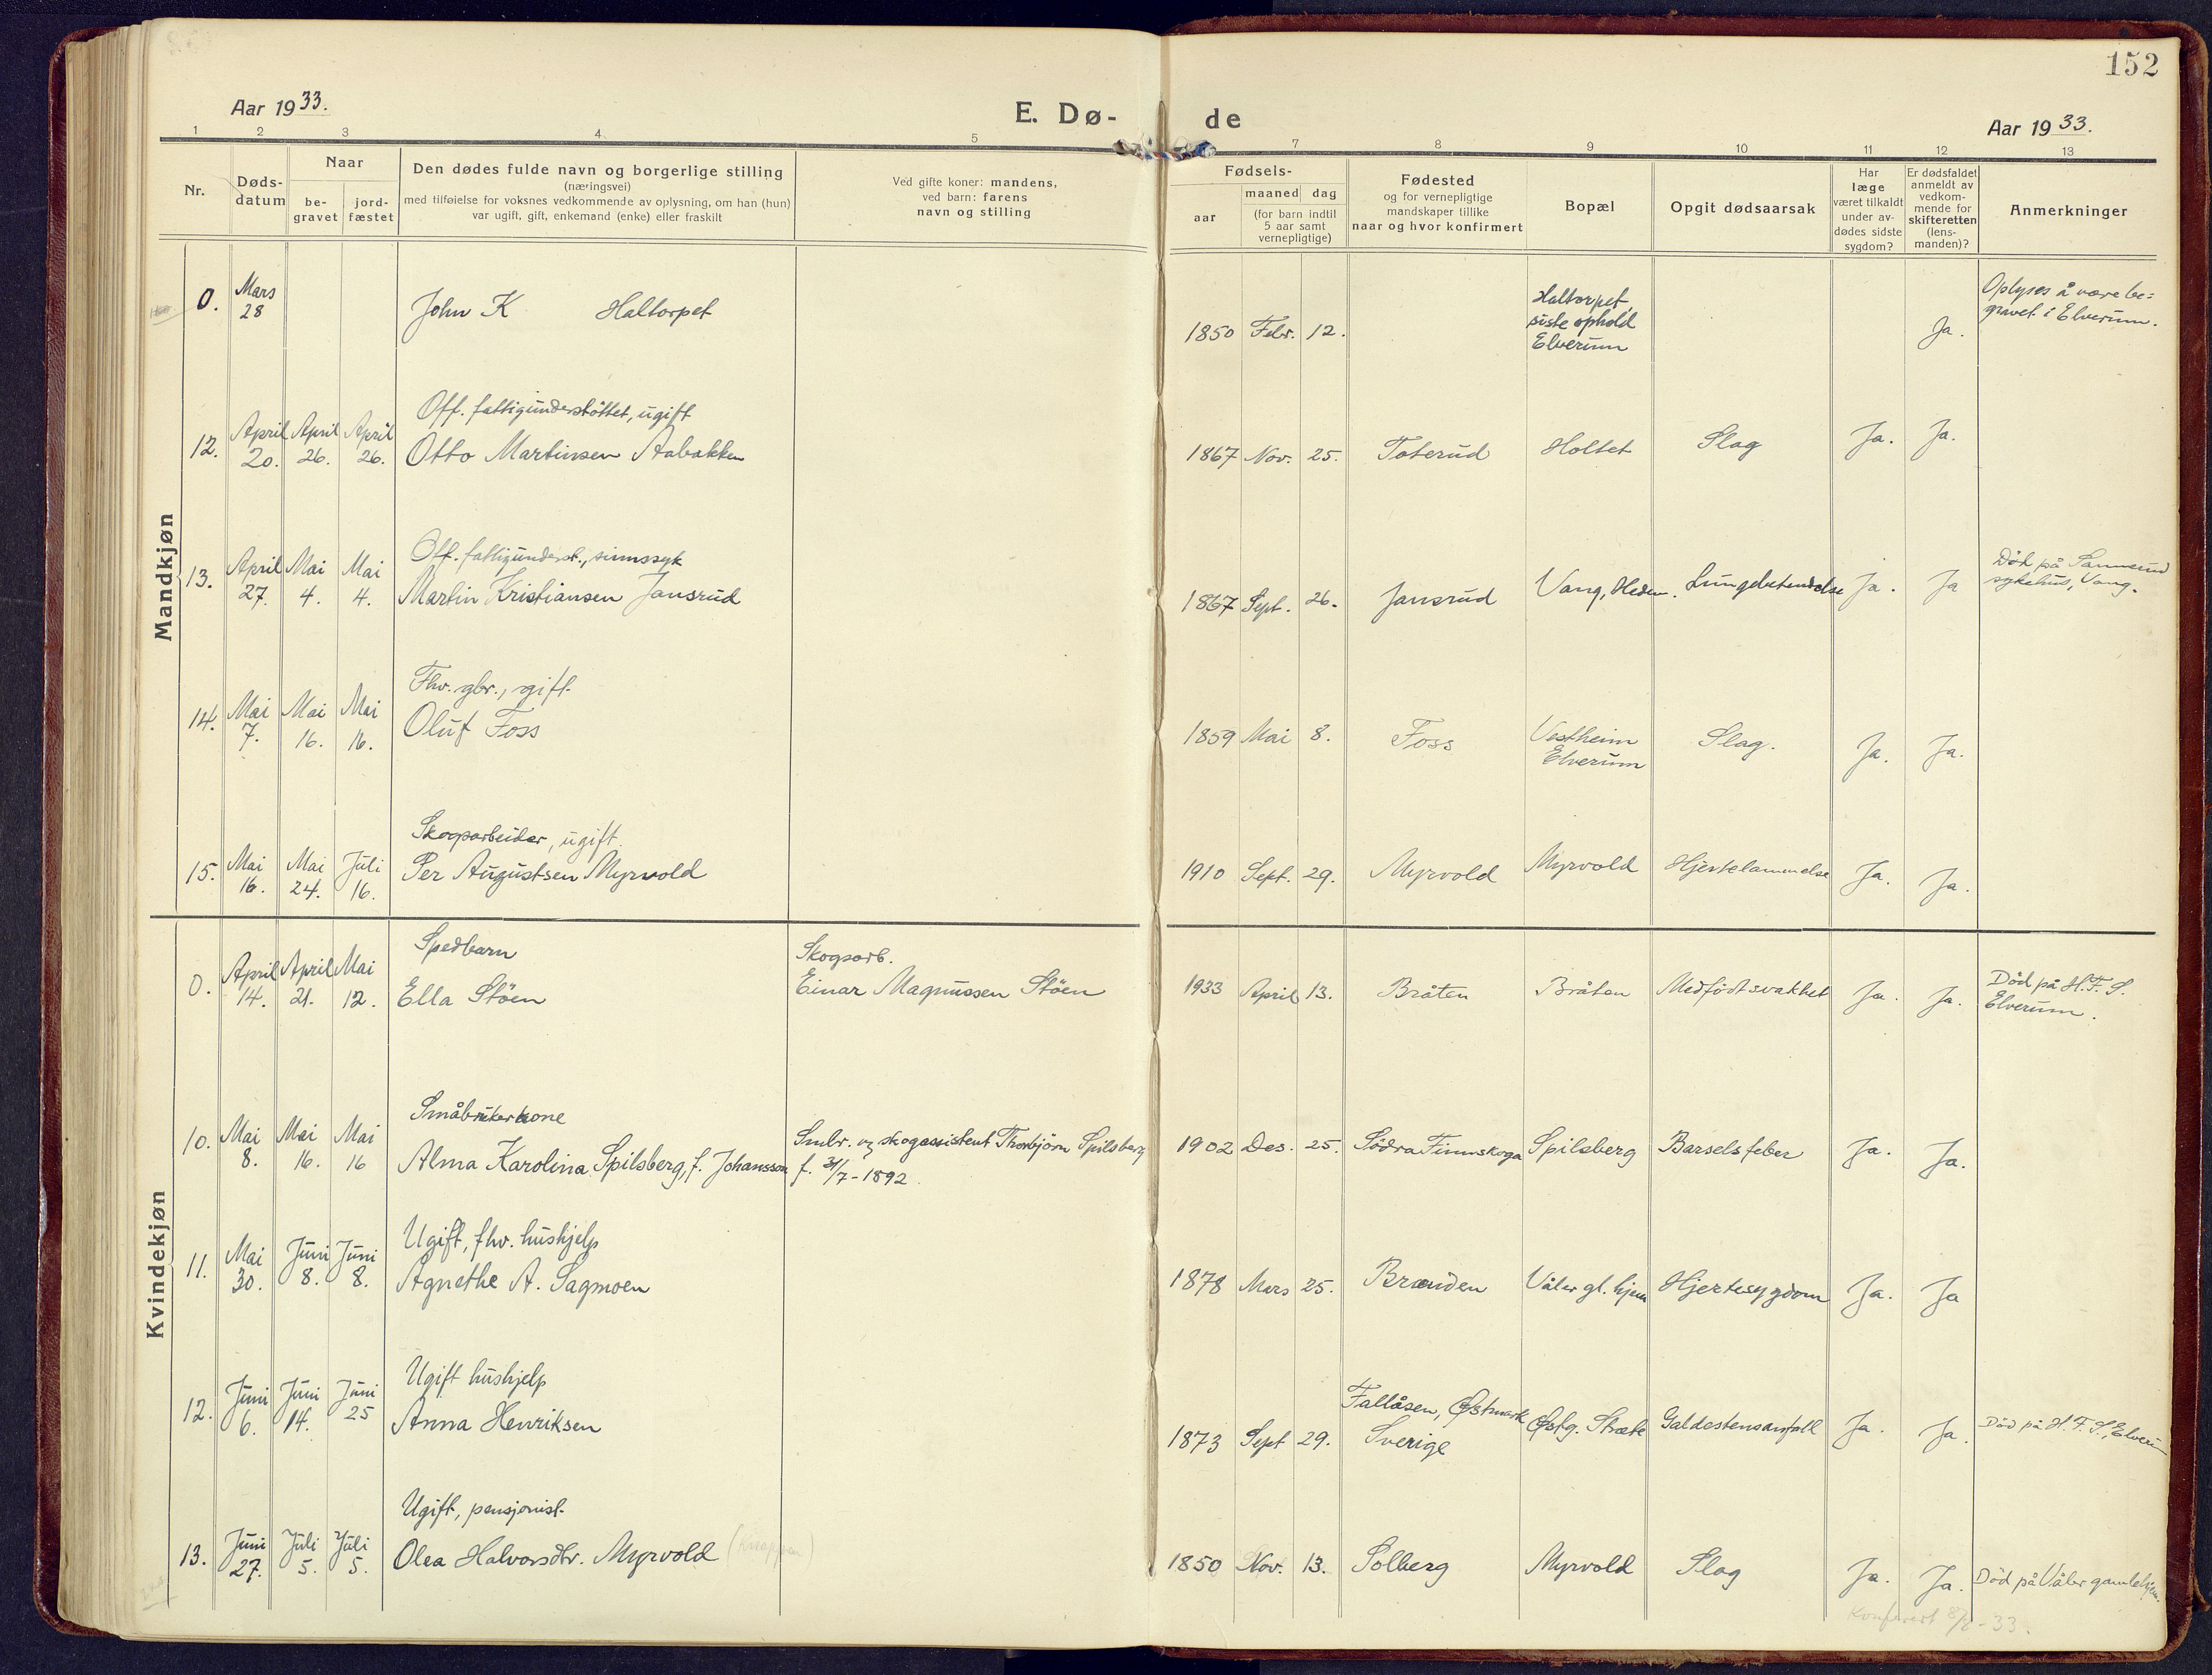 152
Aar 1933.
E. Dø-
de
Aar 1933.
1 2 3 4 5 7 8 9 10 11 12 13
Nr.
Døds-
datum
Naar
be-
gravet
jord-
fæstet
Den dødes fulde navn og borgerlige stilling
(næringsvei)
med tilføielse for voksnes vedkommende av oplysning, om han (hun)
var ugift, gift, enkemand (enke) eller fraskilt
Ved gifte koner: mandens,
ved barn: farens
navn og stilling
Fødsels-
aar
maaned dag
(for barn indtil
5 aar samt
vernepligtige)
Fødested
og for vernepligtige
mandskaper tillike
naar og hvor konfirmert
Bopæl
Opgit dødsaarsak
Har
læge
været tilkaldt
under av-
dødes sidste
sygdom?
Er dødsfaldet
anmeldt av
vedkom-
mende for
skifteretten
(lens-
manden)?
Anmerkninger
Mandkjøn
0. Mars
28
John K Haltorpet
1850 Febr. 12.
Haltorpet
siste ophold
Elverum
Ja.
Oplyses å være be=
gravet i Elverum.
Off. fattigunderstöttet, ugift
12. April 20. April 26. April 26. Otto Martinsen Aabakken
1867 Nov. 25. Toterud Holtet Slag Ja. Ja.
Off. fattigunderst., sinnssyk
13. April 27. Mai 4. Mai 4. Martin Kristiansen Jansrud
1867 Sept. 26. Jansrud Vang, Hedm. Lungebetendelse Ja. Ja
Död på Sannerud
sykehus, Vang.
Fhv. gbr., gift.
14. Mai 7. Mai 16. Mai 16. Oluf Foss
1859 Mai 8. Foss Vestheim
Elverum
Slag. Ja. Ja.
Skogsarbeider, ugift.
15. Mai 16. Mai 24. Juli 16. Per Augustsen Myrvold
1910 Sept. 29. Myrvold Myrvold Hjertelammelse Ja. Ja.
Kvindekjøn
Spedbarn
0. April 14. April 21. Mai 12. Ella Stöen
Skogsarb.
Einar Magnussen Stöen
1933 April 13. Bråten Bråten Medfödt svakhet Ja. Ja.
Död på H.F.S.
Elverum.
Småbrukerkone
10. Mai 8. Mai 16. Mai 16 Alma Karolina Spilsberg, f. Johansson
Smbr. og skogassistent Thorbjörn Spilsberg
f. 31/7-1892
1902 Des. 25. Södra Finnskoga Spilsberg Barselsfeber Ja. Ja.
Ugift, fhv. hushjelp
11. Mai 30. Juni 8. Juni 8. Agnethe A. Sagmoen
1878 Mars 25. Brænden Våler gl. hjem Hjertesygdom Ja. Ja
Ugift hushjelp
12. Juni 6. Juni 14. Juni 25 Anna Henriksen
1873 Sept 29. Fallåsen, Østmark
Sverige
Østg. Stræte Galdestensanfall Ja. Ja.
Död på H.F.S., Elverum
Ugift, pensjonist.
13. Juni 27. Juli 5. Juli 5. Olea Halvorsdtr. Myrvold
1850 Nov. 13. Solberg Myrvold Slag Ja. Ja. Död på Våler gamlehjem.
Konferert 8/8-33.